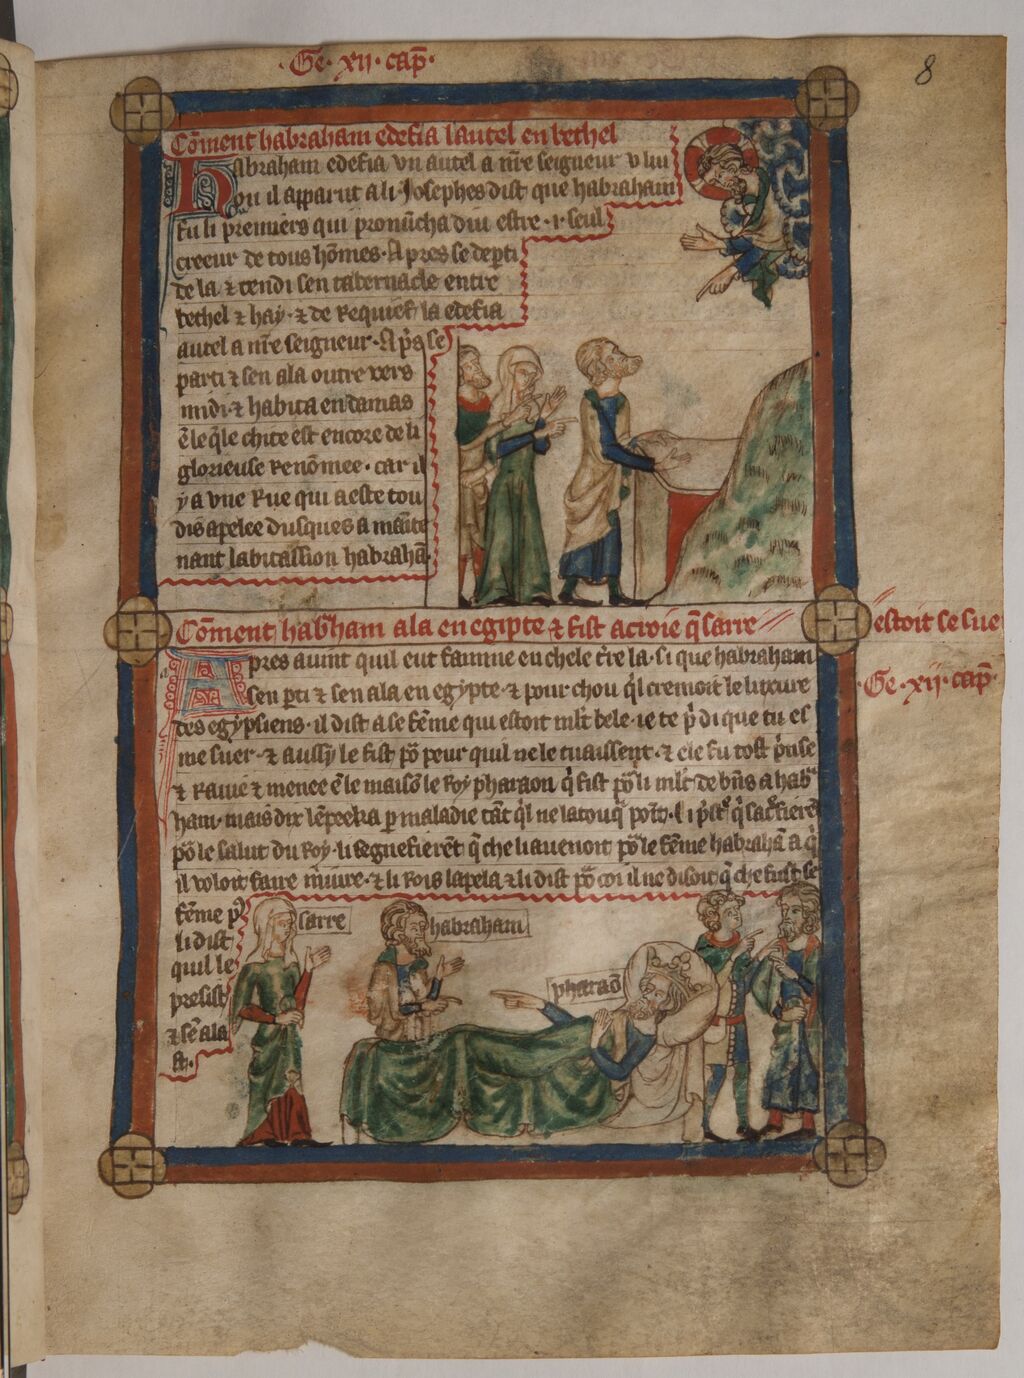 ·Ge·xij·cap̄·
8
Cōment habraham edefia lautel en bethel
Habraham edefia vn autel a nr̄e seigneur v liu
ou il apparut a li Josephes dist que habraham
fu li premiers qui pronūcha diu estre ·i· seul
creeur de tous hōmes· Apres se dep̄ti
de la ⁊ tendi sen tabernacle entre
bethel ⁊ hay· ⁊ de requief la edefia
autel a nr̄e seigneur· Ap̄s se
parti ⁊ sen ala outre vers
midi· ⁊ habita en damas
ē le q̄le chite est encore de li
glorieuse renōmee· car il
y a vne rue qui a este tou
dis apelee dusques a māīte
nant labitassion habrahā·
Cōment hab̄ham ala en egipte ⁊ fist acroie q̄ sarre
estoit se sue
·Ge·xij·cap̄·
Apres auint quil eut famine en chele t̄re la· si que habraham
sen p̄ti ⁊ sen ala en egypte· ⁊ pour chou q̄l cremoit le luxure
des egypsiens· il dist a se fēme qui estoit ml̄t bele· ie te p̄ di que tu es
me suer· ⁊ aussy le fist pō peur quil ne le tuaissent· ⁊ ele fu tost p̄nse
⁊ rauie ⁊ menee ē le maisō le roy pharaon q̄ fist pō li ml̄t de bn̄s a hab̄
ham· mais dix lēpeeka p maladie tāt q̄l ne latouq̄ poīt· li p̄st̄ q̄ sac̄fierēt
pō le salut du roy· li segnefierēt q̄ che li auenoit pō le fēme habrahā a q̄
il voloit faire iniure· ⁊ li rois lapela ⁊ li dist pō coi il ne disoit q̄ che fust se
fēme p̄
li dist
quil le
presist
⁊ sē ala
st·
sarre
habraham
pharaō